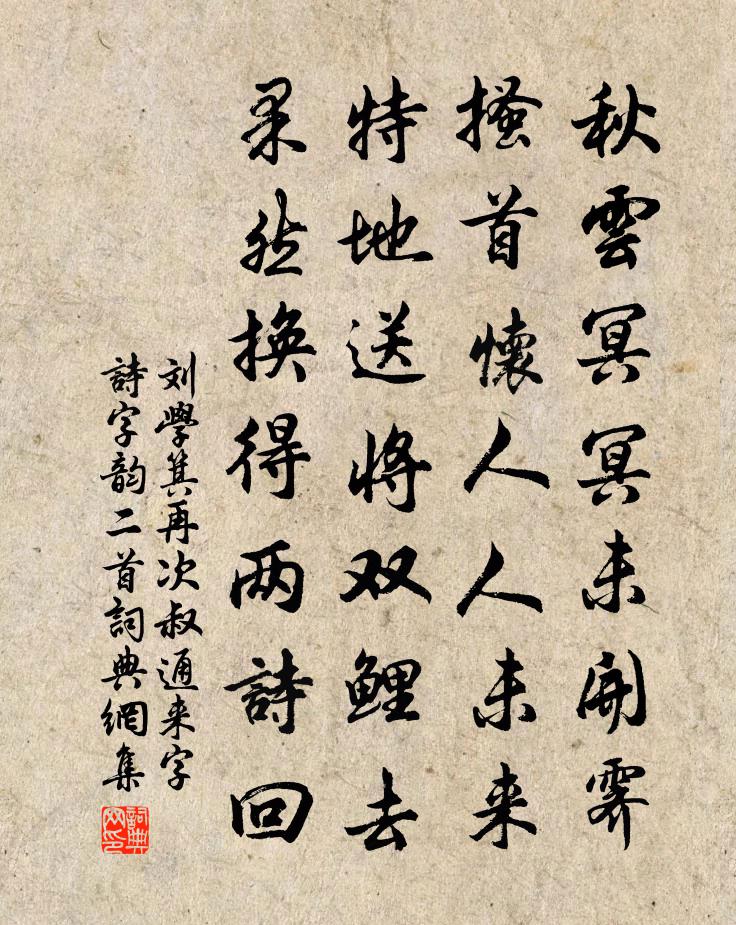 秋雲冥冥未開霽
搔首懷人人未来
特地送将双鲤去
果然换得两詩回
刘學箕再次叔通来字
詩字韵二首詞典網集
詞典网印